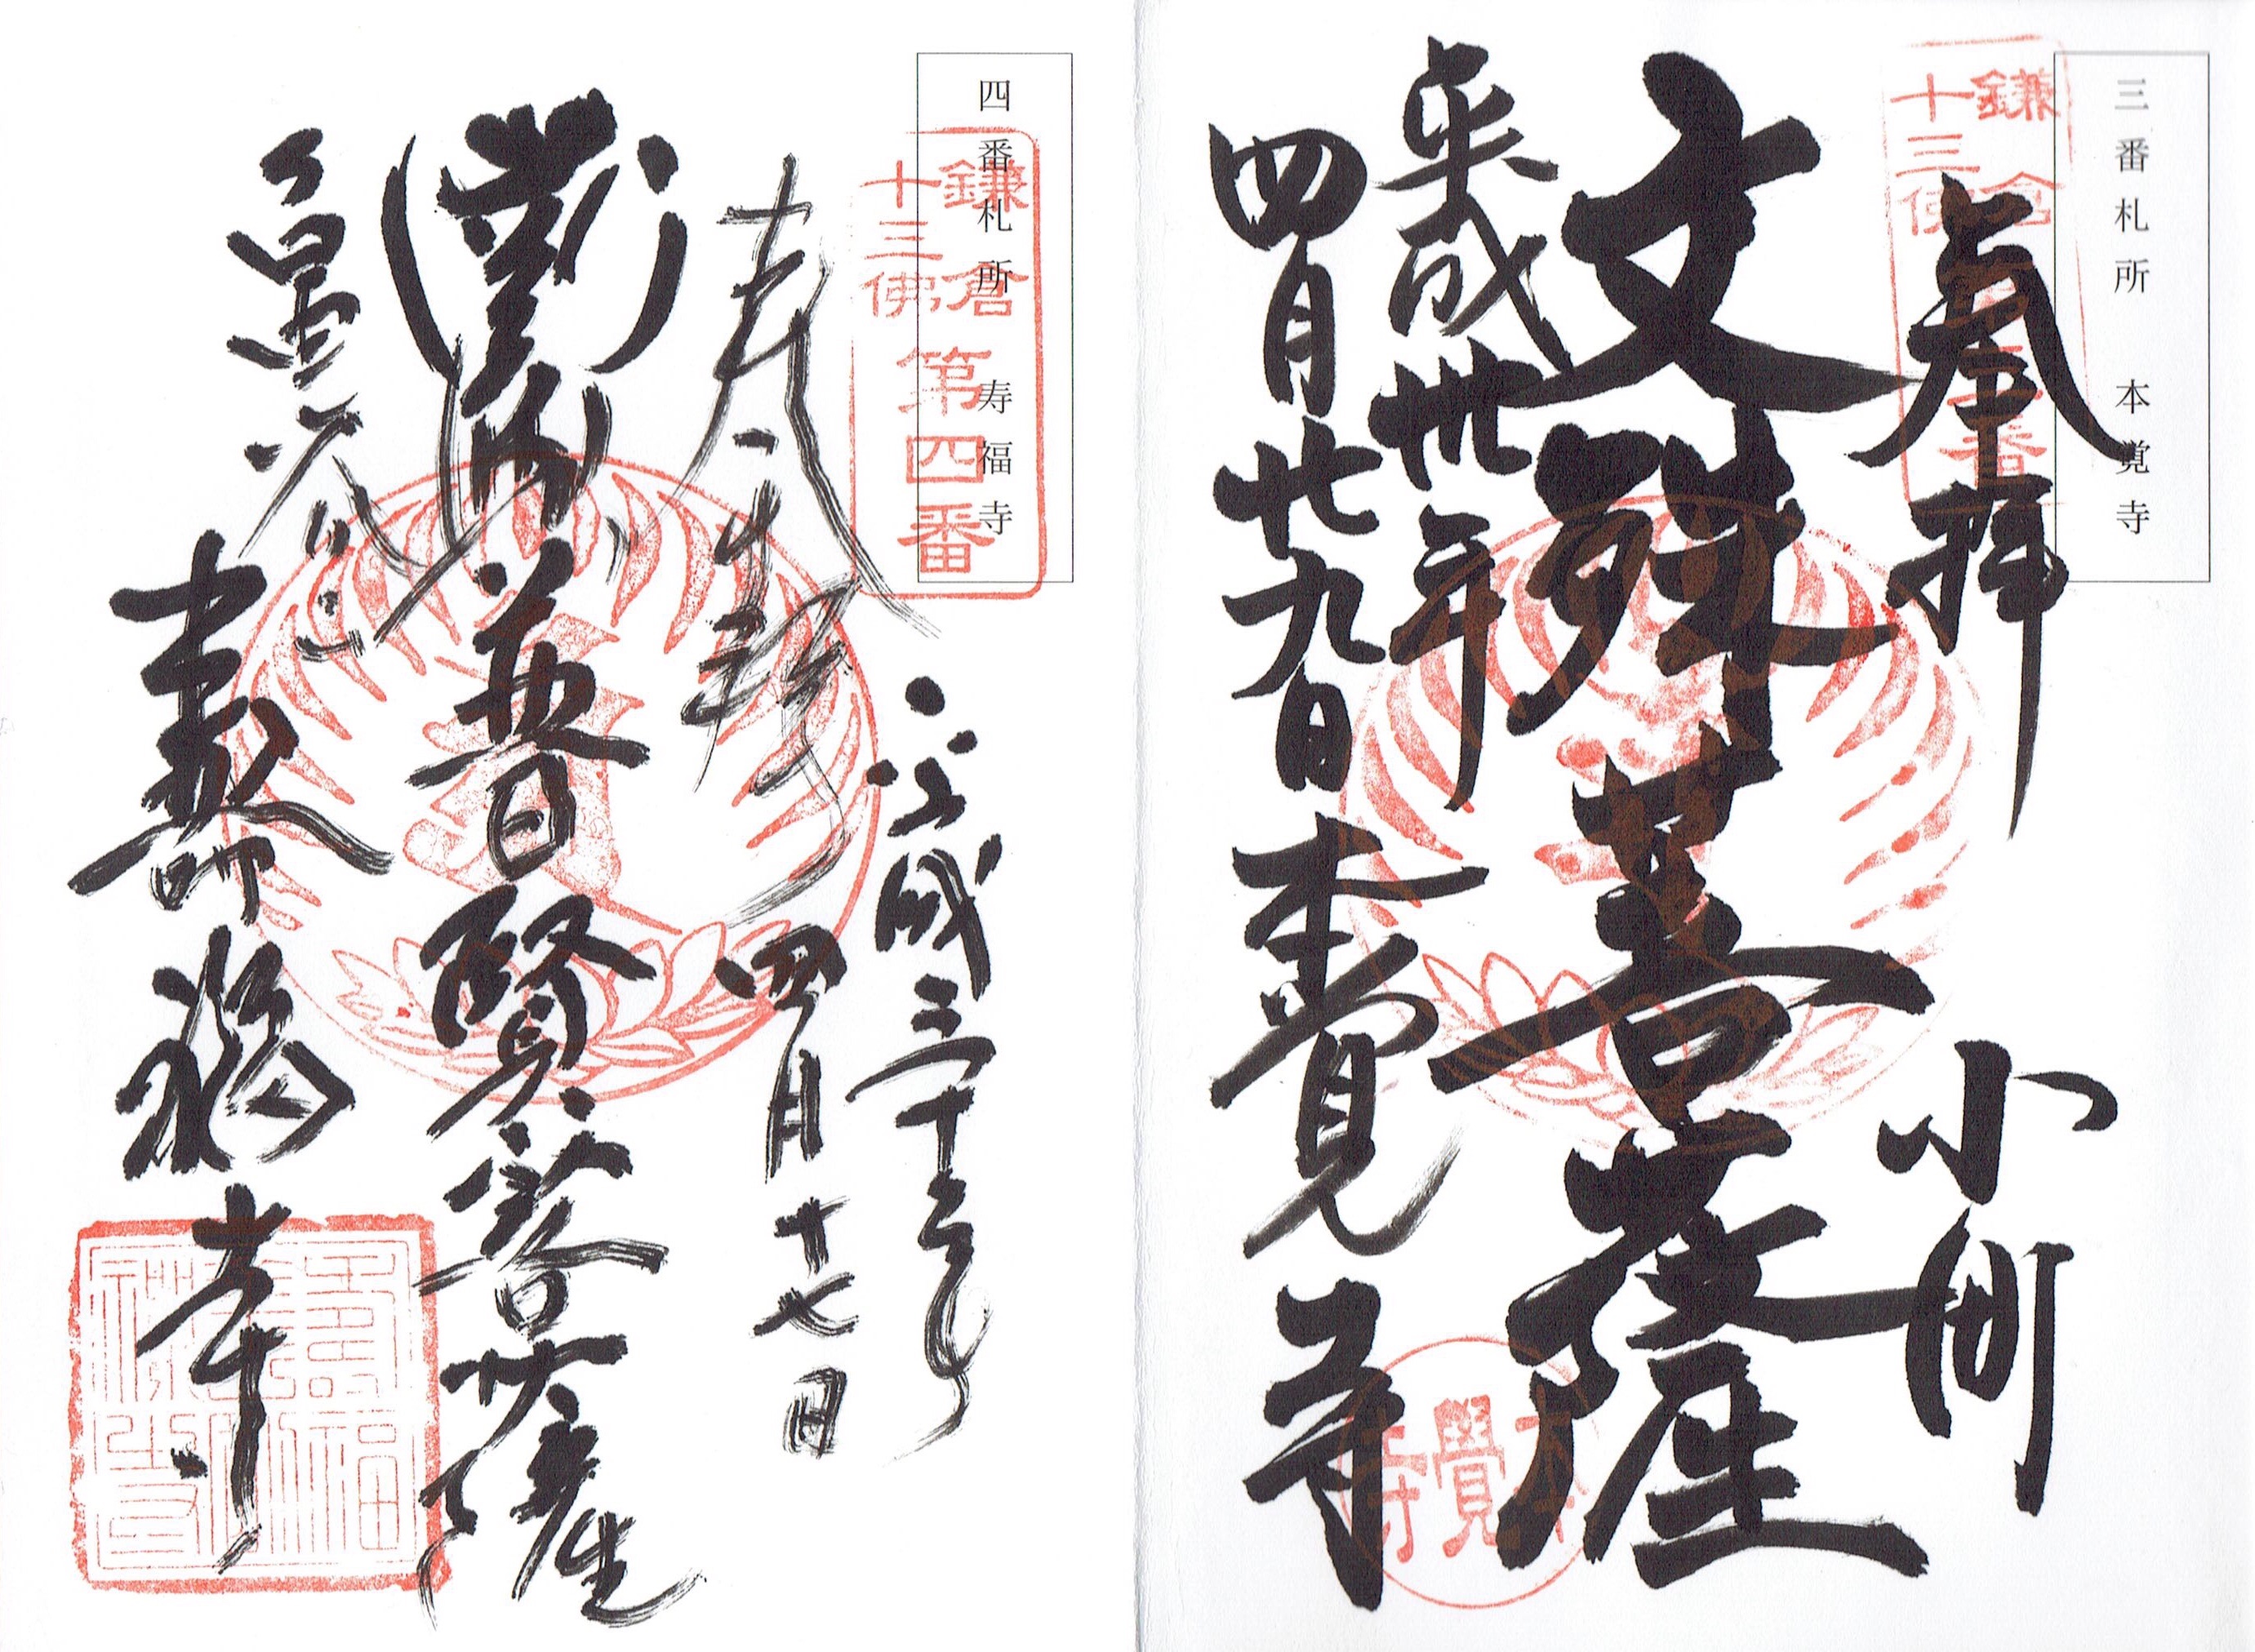 三番札所 本覚寺
鎌倉
十三佛
奉拝
小町
文殊菩薩
平成卅年
四月廿九日
本覺寺
本覺寺
四番札所 寿福寺
鎌倉
十三佛
第四番
奉拝
平成三十年
四月十七日
普賢菩薩
亀谷山
壽福寺